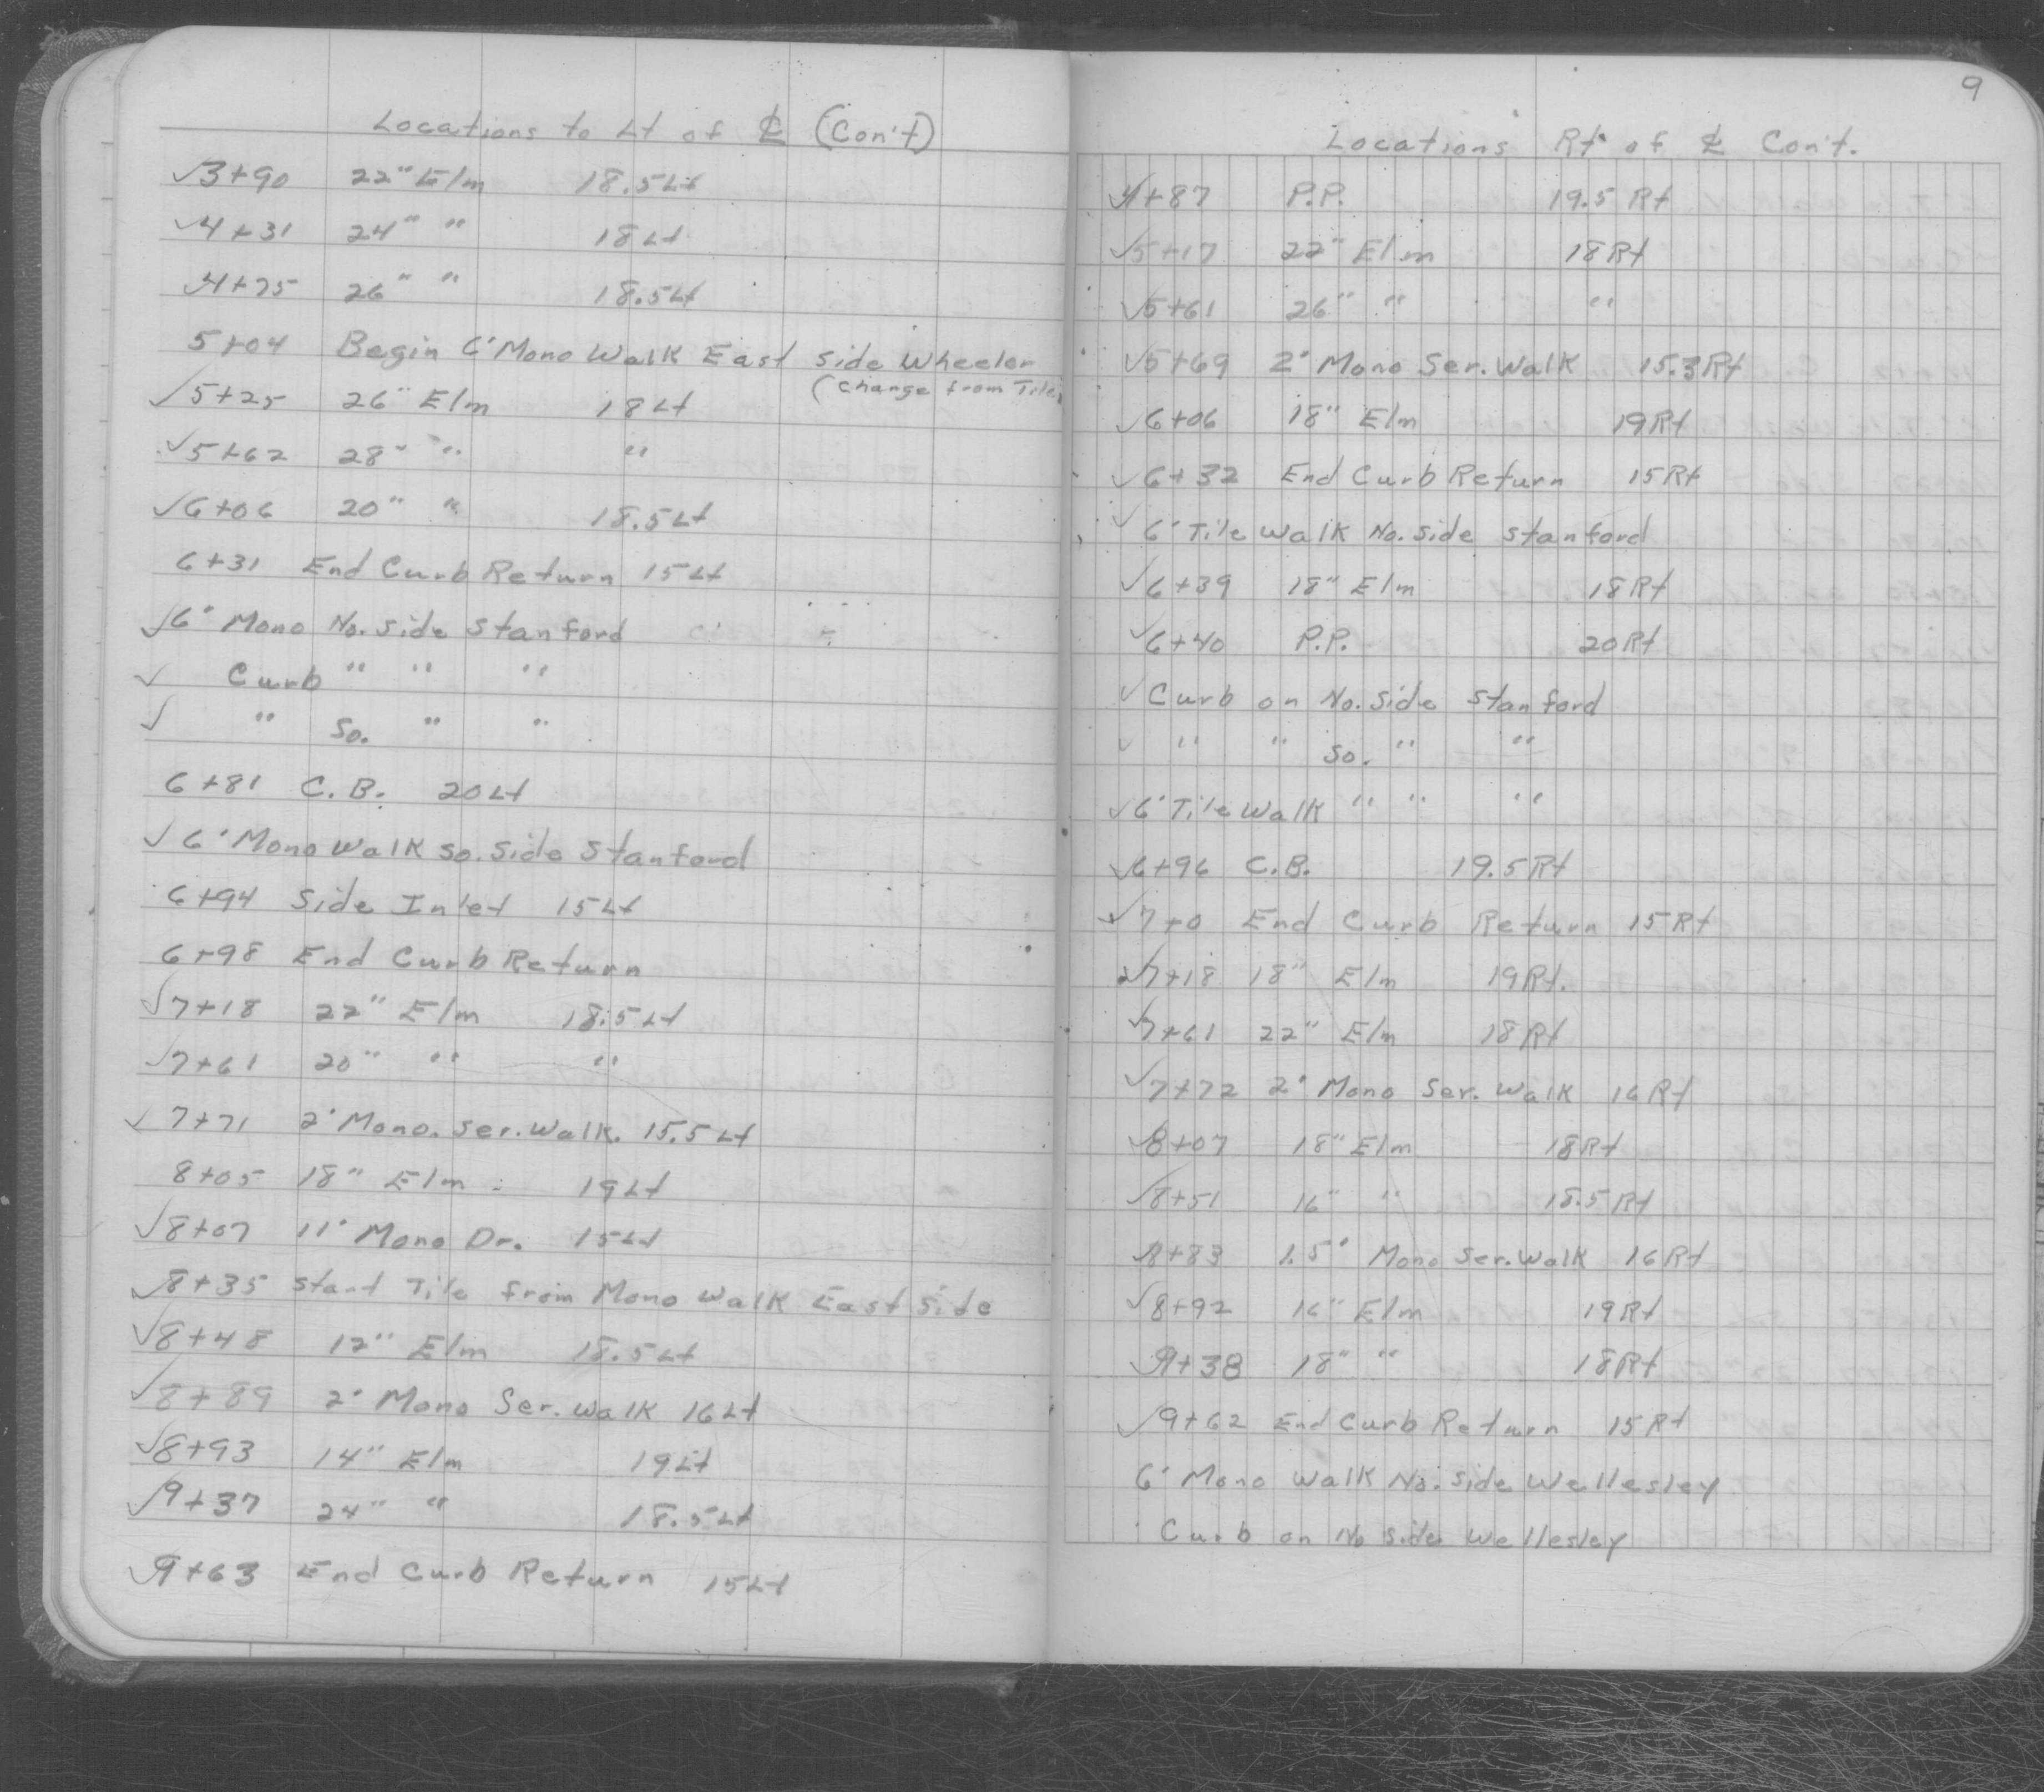 Locations to Lt of ℄ (Con't)
√3+90 22" Elm 18.5Lt
√4+31 24" " 18Lt
√4+75 26" " 18.5Lt
5+04 Begin 6' Mono Walk East Side Wheeler
(Change from Tile)
√5+25 26" Elm 18Lt
√5+62 28" " "
√6+06 20" " 18.5Lt
6+31 End Curb Return 15Lt
√6' Mono No. Side Stanford
√ Curb " " "
√ " So. " "
6+81 C.B. 20Lt
√6' Mono Walk So. Side Stanford
6+94 Side Inlet 15Lt
6+98 End Curb Return
√7+18 22" Elm 18.5Lt
√7+61 20" " "
√7+71 2' Mono. Ser. Walk. 15.5Lt
8+05 18" Elm 19Lt
√8+07 11' Mono Dr. 15Lt
√8+35 Start Tile from Mono Walk East Side
√8+48 12" Elm 18.5Lt
√8+89 2' Mono Ser. Walk 16Lt
√8+93 14" Elm 19Lt
√9+37 24" " 18.5Lt
√9+63 End Curb Return 15Lt
9
Locations Rt of ℄ Con't.
√4+87 P.P. 19.5 Rt
√5+17 22" Elm 18Rt
√5+61 26" " "
√5+69 2' Mono Ser. Walk 15.3Rt
√6+06 18" Elm 19Rt
√6+32 End Curb Return 15Rt
√6' Tile Walk No. Side Stanford
√6+39 18" Elm 18Rt
√6+40 P.P. 20Rt
√Curb on No. Side Stanford
√ " " So. " "
√6' Tile Walk " " "
√6+96 C.B. 19.5Rt
√7+0 End Curb Return 15Rt
√7+18 18" Elm 19Rt.
√7+61 22" Elm 18Rt
√7+72 2' Mono Ser. Walk 16Rt
√8+07 18" Elm 18Rt
√8+51 16" " 18.5Rt
√8+83 1.5' Mono Ser. Walk 16Rt
√8+92 16" Elm 19Rt
√9+38 18" " 18Rt
√9+62 End Curb Return 15Rt
6' Mono Walk No. Side Wellesley
Curb on No Side Wellesley